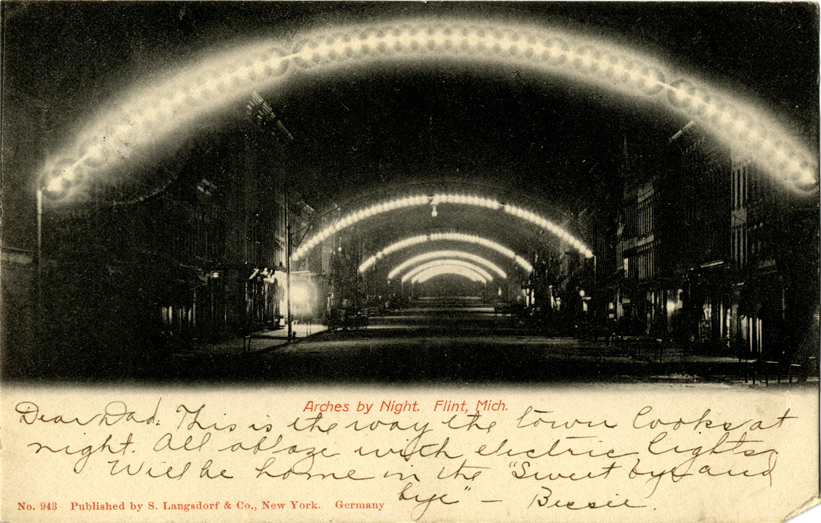 Arches by Night. Flint, Mich.
Dear Dad. This is the way the town looks at
night. All ablaze with electric lights.
Will be home in the "Sweet bye and
bye" – Bessie.
No. 943 Published by S. Langsdorf & Co., New York. Germany